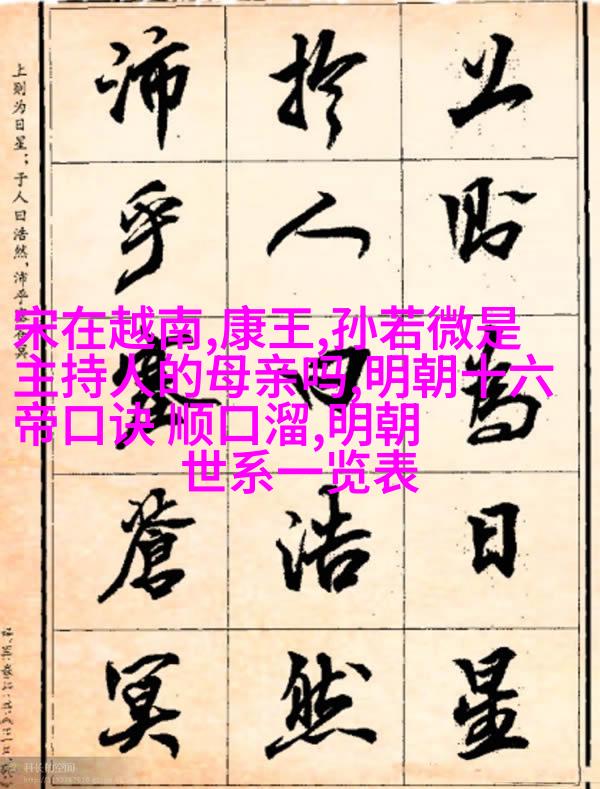 上则为日星
于人曰浩然
沛乎塞苍冥
上则为日星；于人曰浩然，沛乎塞苍冥
宋在越南,康王,孙若微是
主持人的母亲吗,明朝十六
帝口诀 顺口溜,明朝
世系一览表
科长的空间